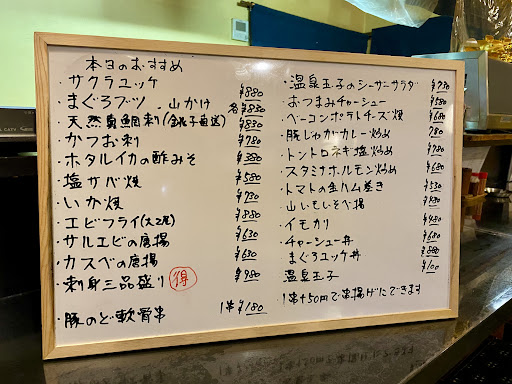 本日のおすすめ
・サクラユッケ ¥880
・まぐろブツ、山かけ 各¥830
・天然真鯛刺(銚子直送) ¥830
・かつお刺 ¥780
・ホタルイカの酢みそ ¥380
・塩サバ焼 ¥580
・いか焼 ¥730
・エビフライ(大2尾) ¥880
・サルエビの唐揚 ¥630
・カスベの唐揚 ¥630
・刺身三品盛り 得 ¥980
・豚のど軟骨串 1串¥180
・温泉玉子のシーザーサラダ ¥730
・おつまみチャーシュー ¥580
・ベーコンポテトチーズ焼 ¥680
・豚じゃがカレー炒め 780
・トントロネギ塩炒め ¥680
・スタミナホルモン炒め ¥680
・トマトの生ハム巻き ¥530
・山いもいそべ揚 ¥430
・イモカリ ¥480
・チャーシュー丼 ¥680
まぐろユッケ丼 ¥880
温泉玉子 ¥100
・1串+50円で串揚げにできます